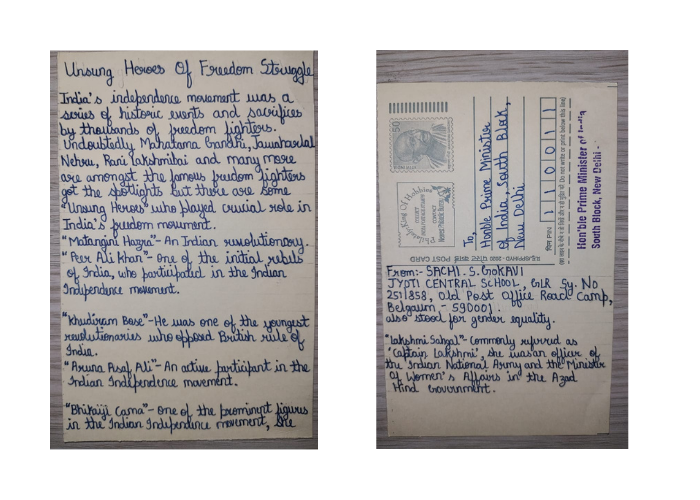 Unsung Heroes Of Freedom Struggle
India's independence movement was a
series of historic events and sacrifices
by thousands of freedom fighters.
Undoubtedly Mahatama Gandhi, Jawaharlal
Nehru, Rani Lakshmibai and many more
are amongst the famous freedom fighters
got the spotlights but there are some
"Unsung Heroes" who played crucial role in
India's freedom movement.
"Matangini Hazra"- An Indian revolutionary.
"Peer Ali Khan"- one of the initial rebels
of India, who participated in the Indian
Independence movement.
"Khudiram Bose"- He was one of the youngest
revolutionaries who opposed British rule of
India.
"Aruna Asaf Ali"- An active participint in the
Indian Independence movement.
"Bhikaiji Cama"- one of the prominent figures
in the Indian Independence movement, she
To,
Honble Prime Minister
of India, South Block,
New Delhi
पिन PIN 110011
Hon'ble Prime Minister of India
South Block, New Delhi -
50
POST CARD
From:- SACHI . S. GOKAVI
JYPTI CENTRAL SCHOOL, GLR Sy. No
251858, Old Post Office Road Camp,
Belgaum - 590001.
also stood for gender equality.
"Lakshmi Sahgal"- Commonly refered as
'Captain Lakshmi', she was an officer of
the Indian National Army and the Minister
of Women's Affairs in the Azad
Hind Government.